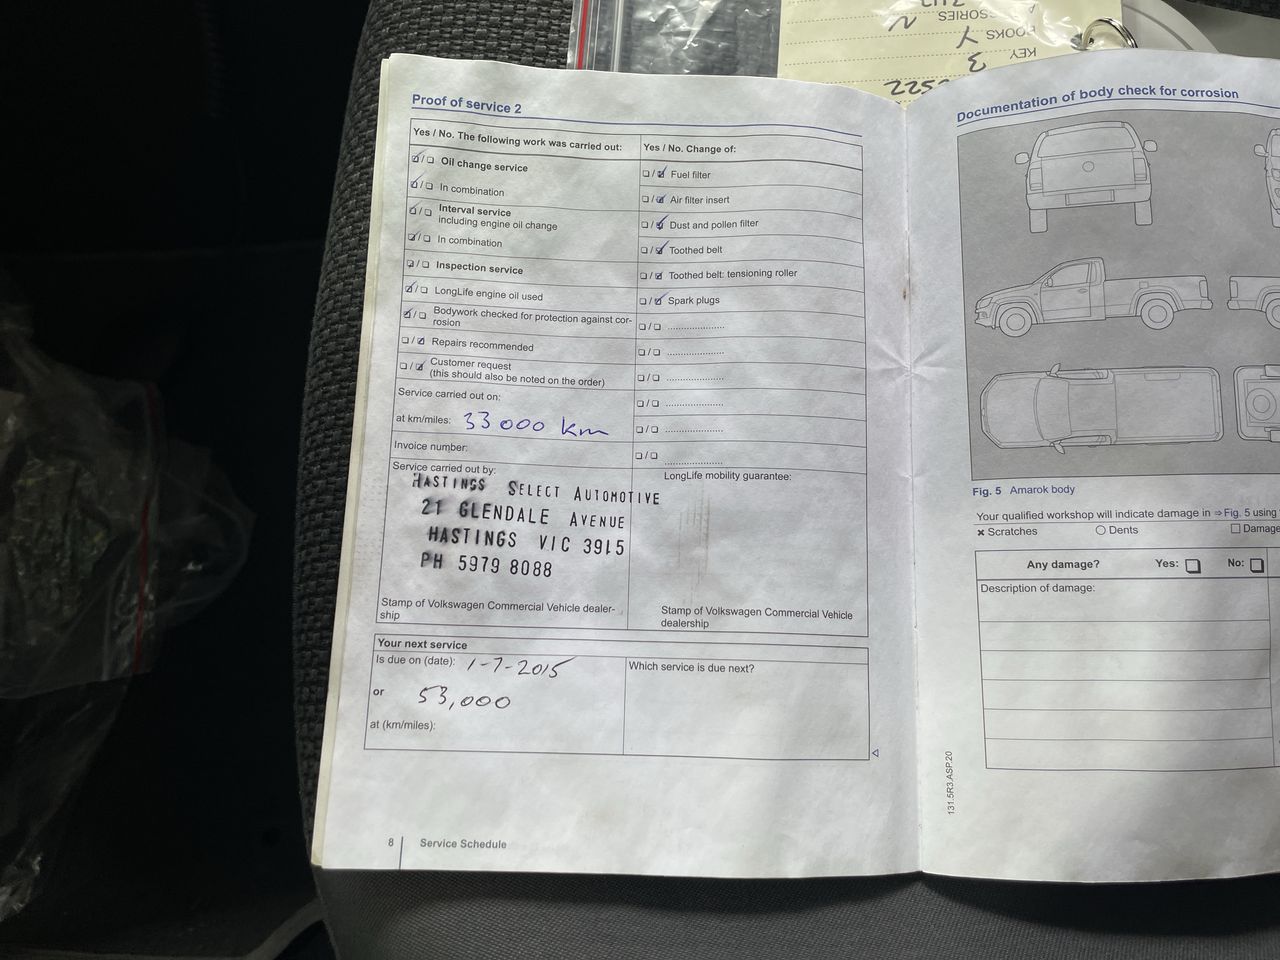 SORIES N
BOOKS Y
KEY 3
Proof of service 2
Yes / No. The following work was carried out:
☑/☐ Oil change service
☑/☐ In combination
☑/☐ Interval service
including engine oil change
☑/☐ In combination
☑/☐ Inspection service
☑/☐ LongLife engine oil used
☑/☐ Bodywork checked for protection against cor-
rosion
☐/☑ Repairs recommended
☐/☑ Customer request
(this should also be noted on the order)
Service carried out on:
at km/miles: 33 000 km
Invoice number:
Service carried out by:
HASTINGS SELECT AUTOMOTIVE
21 GLENDALE AVENUE
HASTINGS VIC 3915
PH 5979 8088
Stamp of Volkswagen Commercial Vehicle dealer-
ship
Yes / No. Change of:
☐/☑ Fuel filter
☐/☑ Air filter insert
☐/☑ Dust and pollen filter
☐/☑ Toothed belt
☐/☑ Toothed belt: tensioning roller
☐/☑ Spark plugs
☐/☐ ......................
☐/☐ ......................
☐/☐ ......................
☐/☐ ......................
☐/☐ ......................
☐/☐ ......................
LongLife mobility guarantee:
Stamp of Volkswagen Commercial Vehicle
dealership
Your next service
Is due on (date): 1-7-2015
or 53,000
at (km/miles):
Which service is due next?
8 Service Schedule
Documentation of body check for corrosion
Fig. 5 Amarok body
Your qualified workshop will indicate damage in ⇒ Fig. 5 using
✖ Scratches ○ Dents ☐ Damage
Any damage? Yes: ☐ No: ☐
Description of damage:
131.5R3.ASP.20